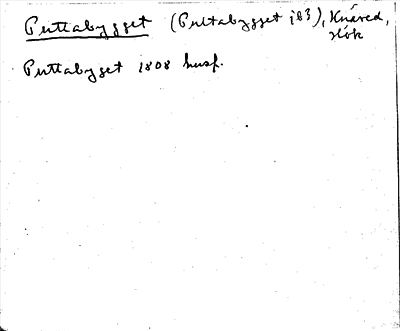 Puttabygget (Pultabygget i83), Knäred,
Hök
Puttabygget 1808 husf.